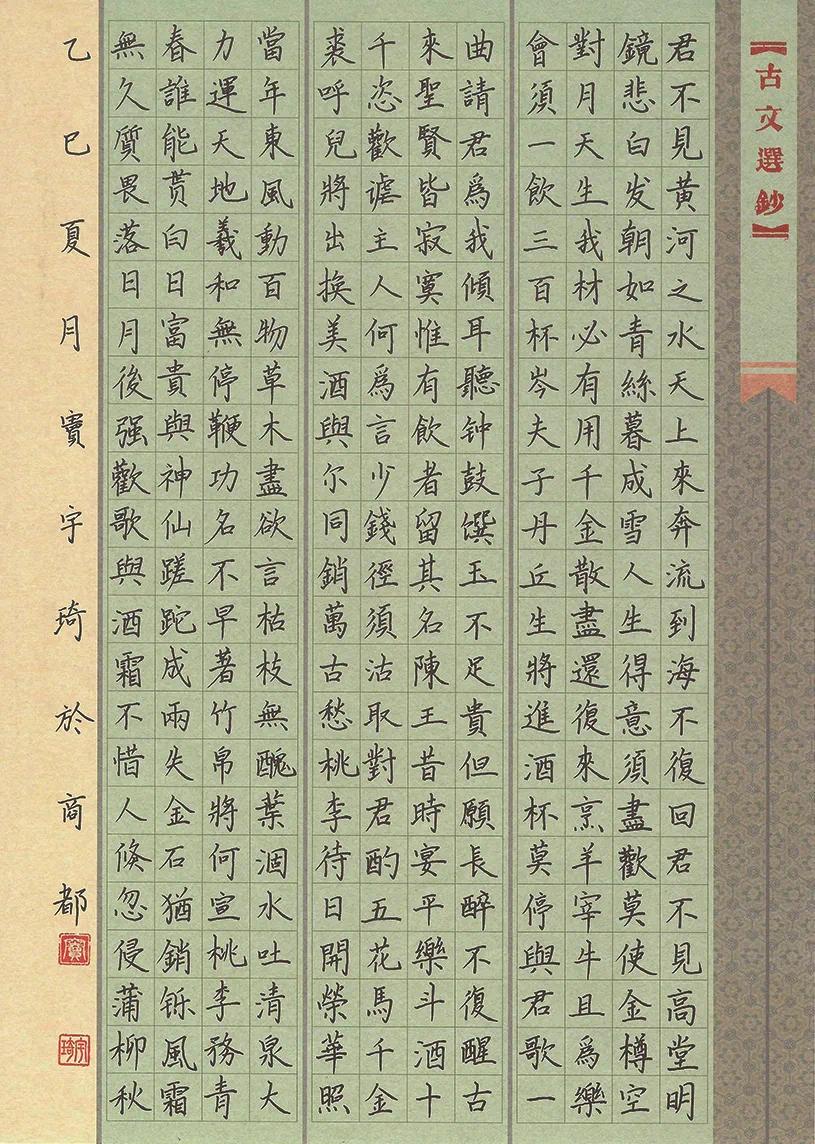 【古文選鈔】
君不見黄河之水天上來奔流到海不復回君不見高堂明
鏡悲白发朝如青絲暮成雪人生得意須盡歡莫使金樽空
對月天生我材必有用千金散盡還復來烹羊宰牛且爲樂
會須一飲三百杯岑夫子丹丘生將進酒杯莫停與君歌一
曲請君爲我傾耳聽钟鼓馔玉不足貴但願長醉不復醒古
來聖賢皆寂寞惟有飲者留其名陳王昔時宴平樂斗酒十
千恣歡謔主人何爲言少錢徑須沽取對君酌五花馬千金
裘呼兒將出換美酒與尔同銷萬古愁桃李待日開榮華照
當年東風動百物草木盡欲言枯枝無醜葉涸水吐清泉大
力運天地羲和無停鞭功名不早著竹帛將何宣桃李務青
春誰能貰白日富貴與神仙蹉跎成兩失金石猶銷铄風霜
無久質畏落日月後强歡歌與酒霜不惜人倏忽侵蒲柳秋
乙巳夏月竇宇琦於商都
竇
宇琦